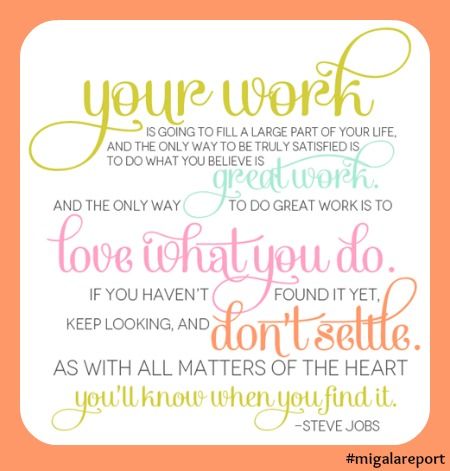 your work
IS GOING TO FILL A LARGE PART OF YOUR LIFE,
AND THE ONLY WAY TO BE TRULY SATISFIED IS
TO DO WHAT YOU BELIEVE IS
great work.
AND THE ONLY WAY TO DO GREAT WORK IS TO
love what you do.
IF YOU HAVEN'T FOUND IT YET,
KEEP LOOKING, AND don't settle.
AS WITH ALL MATTERS OF THE HEART
you'll know when you find it.
–STEVE JOBS
#migalareport